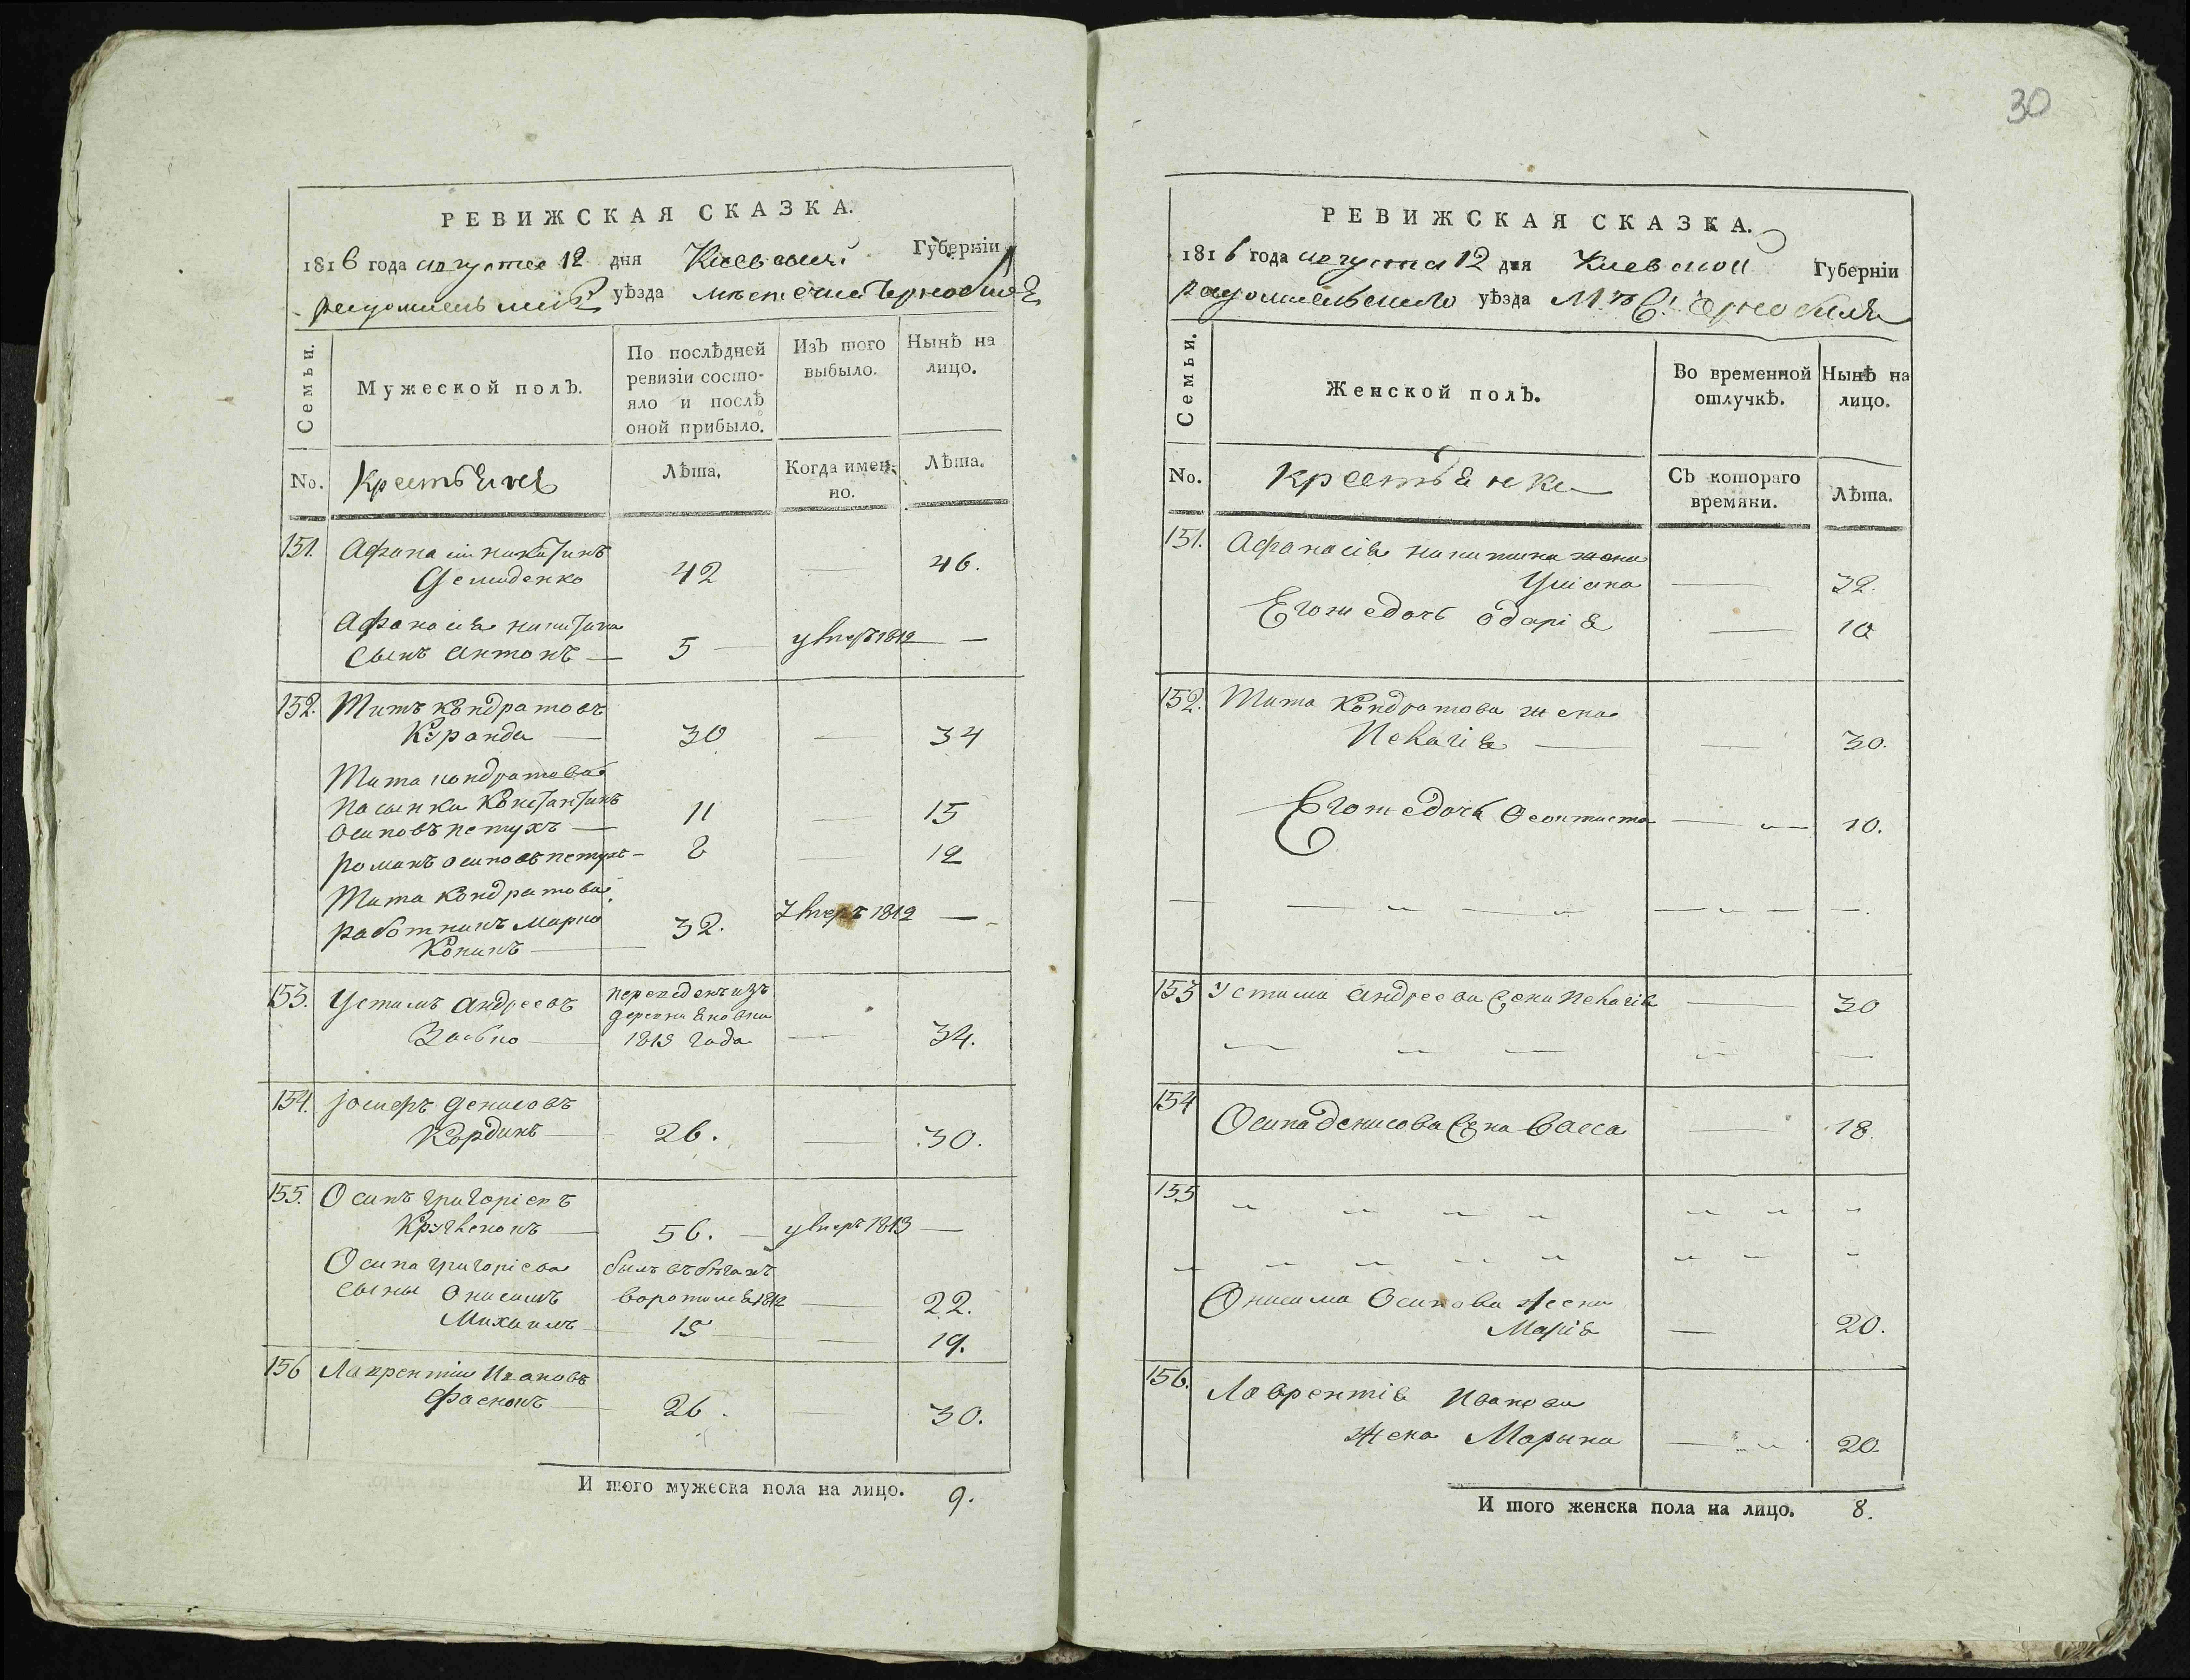 30
РЕВИЖСКАЯ СКАЗКА.
1816 года августа 12 дня Киевской Губерніи
уѣзда мѣстечка Чернобыля
Семьи.
Мужеской полЪ.
По послѣдней ревизіи состояло и послѣ оной прибыло.
ИзЪ того выбыло.
Нынѣ на лицо.
No.
Крестьяне
Лѣта.
Когда именно.
Лѣта.
151. Афанасій никитинъ
Демиденко 42 — 46.
Афанасія никитина
сынъ антонъ — 5 — умеръ 1812 —
152. Титъ кондратовъ
Куранда — 30 — 34
Тита кондратова
пасынки константинъ
осиповъ петухъ — 11 — 15
романъ осиповъ петухъ — 8 — 12
Тита кондратова
работникъ марко 32. умеръ 1812 —
153. Устимъ андреевъ переведенъ изъ
деревни
1813 года — 34.
154. денисовъ
26. — 30.
155. Осипъ григоріевъ
56. — умеръ 1813 —
Осипа григоріева былъ въ бегахъ
сыны онисимъ воротился 1812 — 22.
Михаилъ 15 — 19.
156 Лаврентій Ивановъ
26. 30.
И того мужеска пола на лицо. 9.
РЕВИЖСКАЯ СКАЗКА.
1816 года августа 12 дня Киевской Губерніи
радомысльского уѣзда М. Чернобыля
Семьи.
Женской полЪ.
Во временной отлучкѣ.
Нынѣ на лицо.
No.
крестьянки
СЪ котораго времяни.
Лѣта.
151. Афанасія никитина жена
Уліана — 32.
Егож дочь одарія — 10
152. Тита кондратова жена
Пелагія — — 30.
Егож дочь Феоктиста — 10.
153 Устима андреева жена пелагія — 30
154 Осипа денисова жена васса — 18.
155
Онисима Осипова жена
Марія — 20.
156. Лаврентія иванова
жена Марына — 20
И того женска пола на лицо. 8.